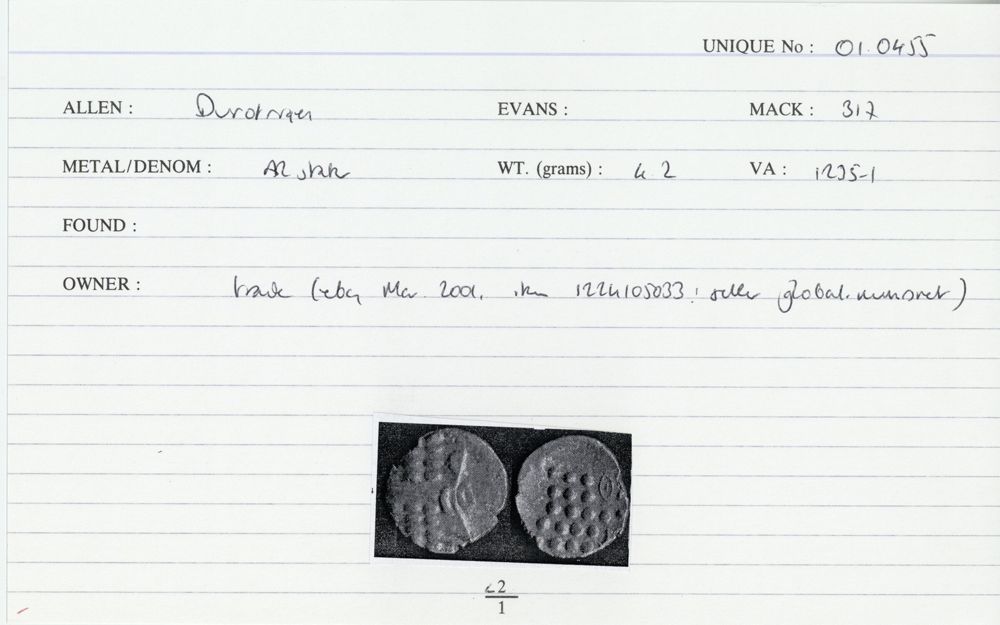 UNIQUE No : 01.0455
ALLEN : Durotriges EVANS : MACK : 317
METAL/DENOM : AR stater WT. (grams) : 4.2 VA : 1235-1
FOUND :
OWNER : trade (ebay Mar 2001, item 1224105033; seller global.numisnet)
c2
1